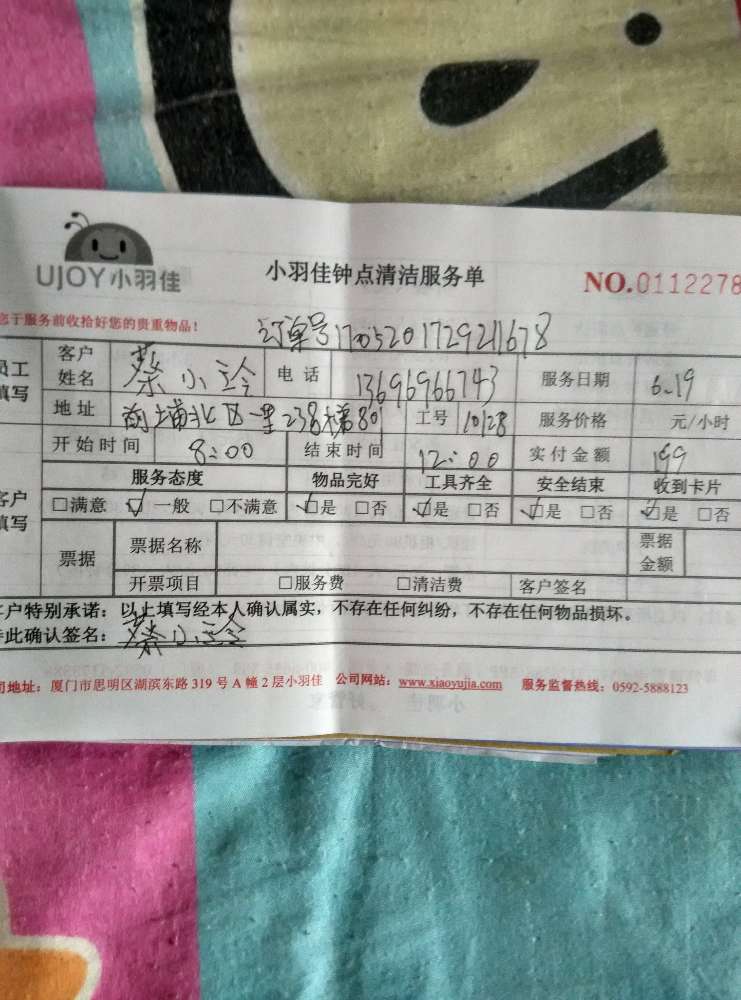 UJOY小羽佳
小羽佳钟点清洁服务单
NO.0112278
您于服务前收拾好您的贵重物品！
订单号
员工填写
客户姓名 蔡小玲 电话 13696966743 服务日期 6.19
地址 前埔北区一里238梯801 工号 10128 服务价格 元/小时
客户填写
开始时间 8:00 结束时间 12:00 实付金额 199
服务态度 物品完好 工具齐全 安全结束 收到卡片
□满意 ☑一般 □不满意 ☑是 □否 ☑是 □否 ☑是 □否 ☑是 □否
票据 票据名称 票据金额
开票项目 □服务费 □清洁费 客户签名
客户特别承诺：以上填写经本人确认属实，不存在任何纠纷，不存在任何物品损坏。
此确认签名：蔡小玲
司地址：厦门市思明区湖滨东路 319 号 A 幢 2 层小羽佳 公司网站：www.xiaoyujia.com 服务监督热线：0592-5888123